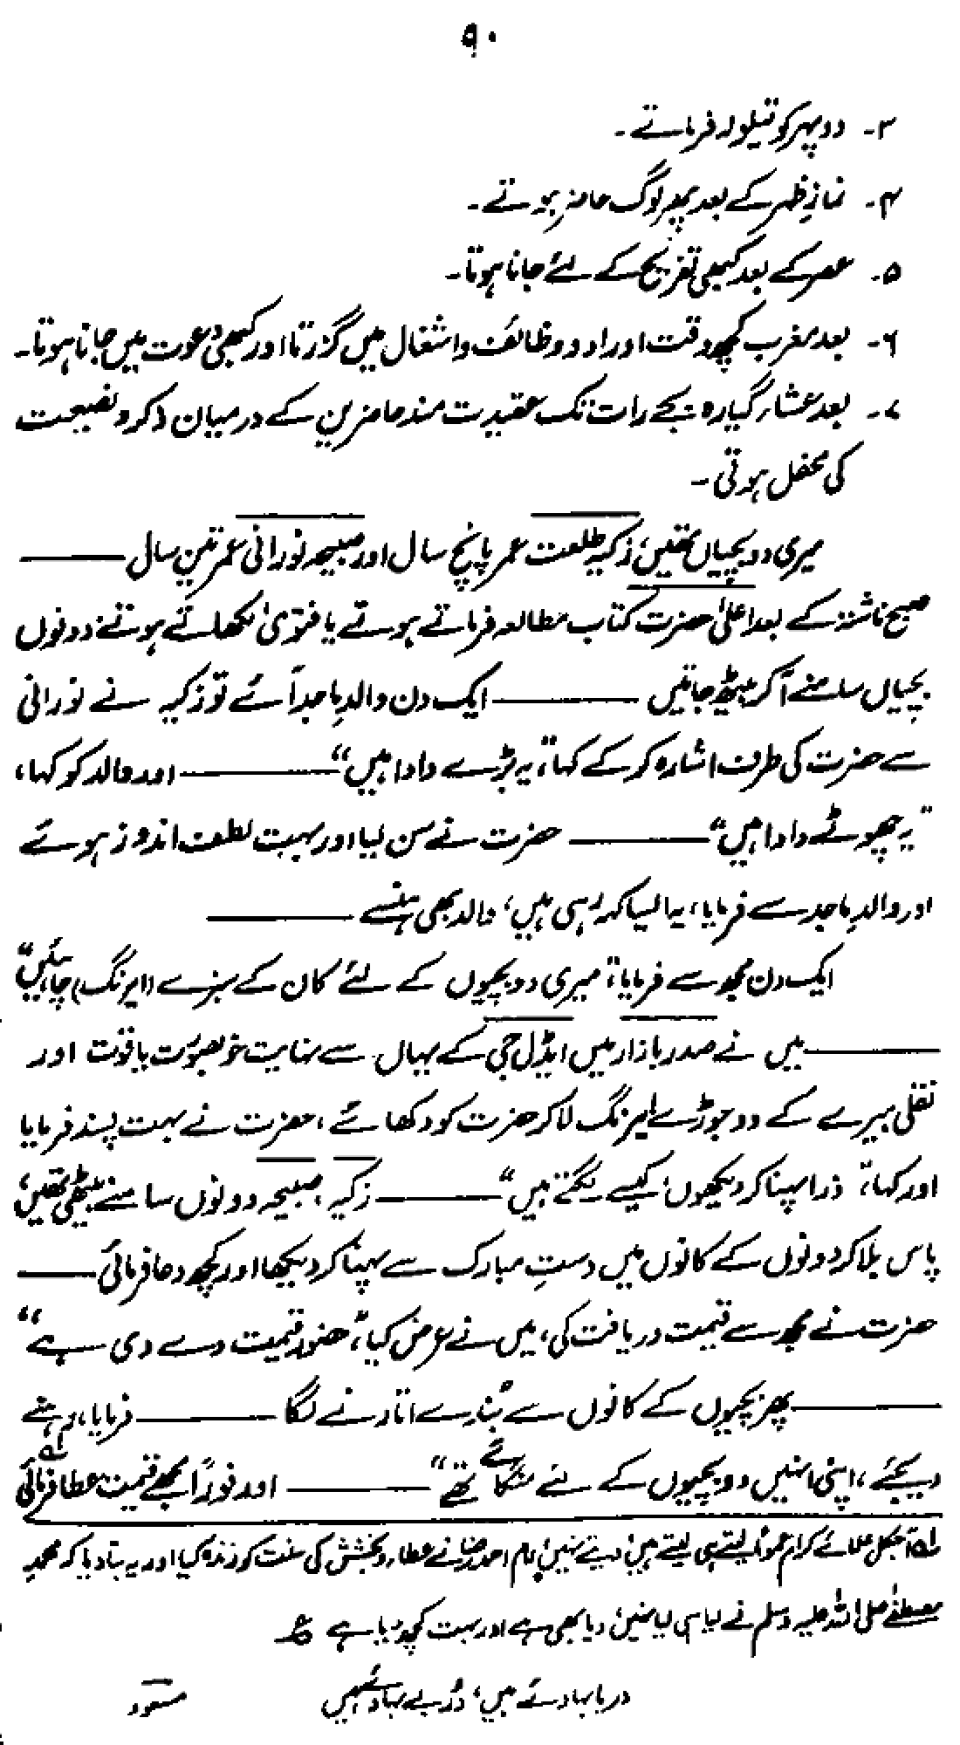 ۹۰
۳۔ دوپہر کو قیلولہ فرماتے۔
۴۔ نمازِ ظہر کے بعد پھر لوگ حاضر ہوتے۔
۵۔ عصر کے بعد کبھی تفریح کے لئے جانا ہوتا۔
۶۔ بعد مغرب کچھ وقت اوراد و وظائف و اشغال میں گزرتا اور کبھی دعوت میں جانا ہوتا۔
۷۔ بعد عشاء گیارہ بجے رات تک عقیدت مند حاضرین کے درمیان ذکر و نصیحت
کی محفل ہوتی۔
میری دو بچیاں تھیں، زکیہ طلعت عمر پانچ سال اور صبیحہ نورانی عمر تین سال ———
صبح ناشتہ کے بعد اعلیٰ حضرت کتاب مطالعہ فرماتے ہوتے یا فتویٰ لکھاتے ہوتے دونوں
بچیاں سامنے آکر بیٹھ جاتیں ——— ایک دن والدِ ماجد آئے تو زکیہ نے نورانی
سے حضرت کی طرف اشارہ کر کے کہا، "یہ بڑے دادا ہیں" ——— اور والد کو کہا،
"یہ چھوٹے دادا ہیں" ——— حضرت نے سن لیا اور بہت لطف اندوز ہوئے
اور والدِ ماجد سے فرمایا، یہ ایسا کہہ رہی ہیں، والد بھی ہنسے ———
ایک دن مجھ سے فرمایا، "میری دو بچیوں کے لئے کان کے بندے (ایرنگ) چاہئیں"
——— میں نے صدر بازار میں ایڈل جی کے یہاں سے نہایت خوبصورت یاقوت اور
نقلی ہیرے کے دو جوڑے ایرنگ لا کر حضرت کو دکھائے، حضرت نے بہت پسند فرمایا
اور کہا، "ذرا پہنا کر دیکھوں، کیسے لگتے ہیں" ——— زکیہ، صبیحہ دونوں سامنے بیٹھی تھیں،
پاس بلا کر دونوں کے کانوں میں دستِ مبارک سے پہنا کر دیکھا اور کچھ دعا فرمائی ———
حضرت نے مجھ سے قیمت دریافت کی، میں نے عرض کیا، "حضور قیمت دے دی ہے"
——— پھر بچیوں کے کانوں سے بُندے اتارنے لگا ——— فرمایا، "رہنے
دیجئے، اپنی انہیں دو بچیوں کے لئے منگائے تھے" ——— اور فوراً مجھے قیمت عطا فرمائی ۵۱؎
۵۱؎ آجکل علمائے کرام عموماً لیتے ہی لیتے ہیں، دیتے نہیں، امام احمد رضا نے عطاء و بخشش کی سنت کو زندہ کیا اور یہ بتا دیا کہ محمدِ
مصطفےٰ صلی اللہ علیہ وسلم نے لیا ہی لیا نہیں، دیا بھی ہے اور بہت کچھ دیا ہے ؏
دریا بہا دئے ہیں، دُر بے بہا دئے ہیں مسعود